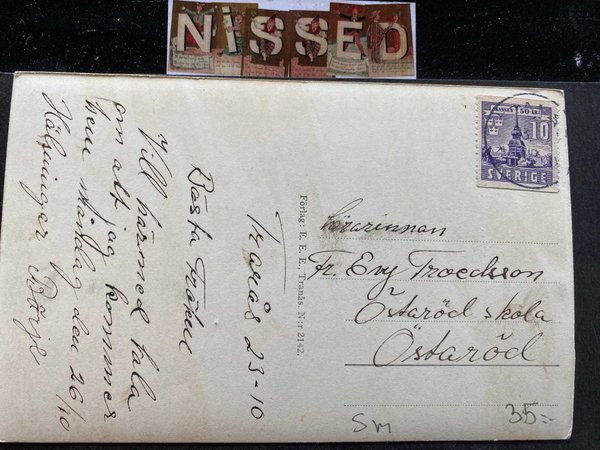 NISSED
SKANSEN 50 ÅR
10
SVERIGE
Lärarinnan
Fr. Evy Troedsson
Östaröd skola
Östaröd
Förlag: E. E. E., Tranås. N:r 2142.
Tranås 23-10
Bästa Fröken
Vill härmed tala
om att jag kommer
hem måndag den 26/10
Hälsningar Börje
Sm
35:-